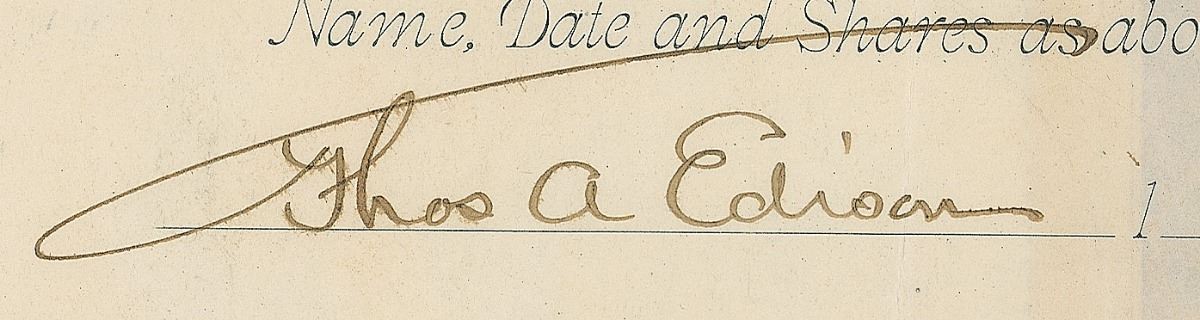 Name, Date and Shares as abo
Thos A Edison
1